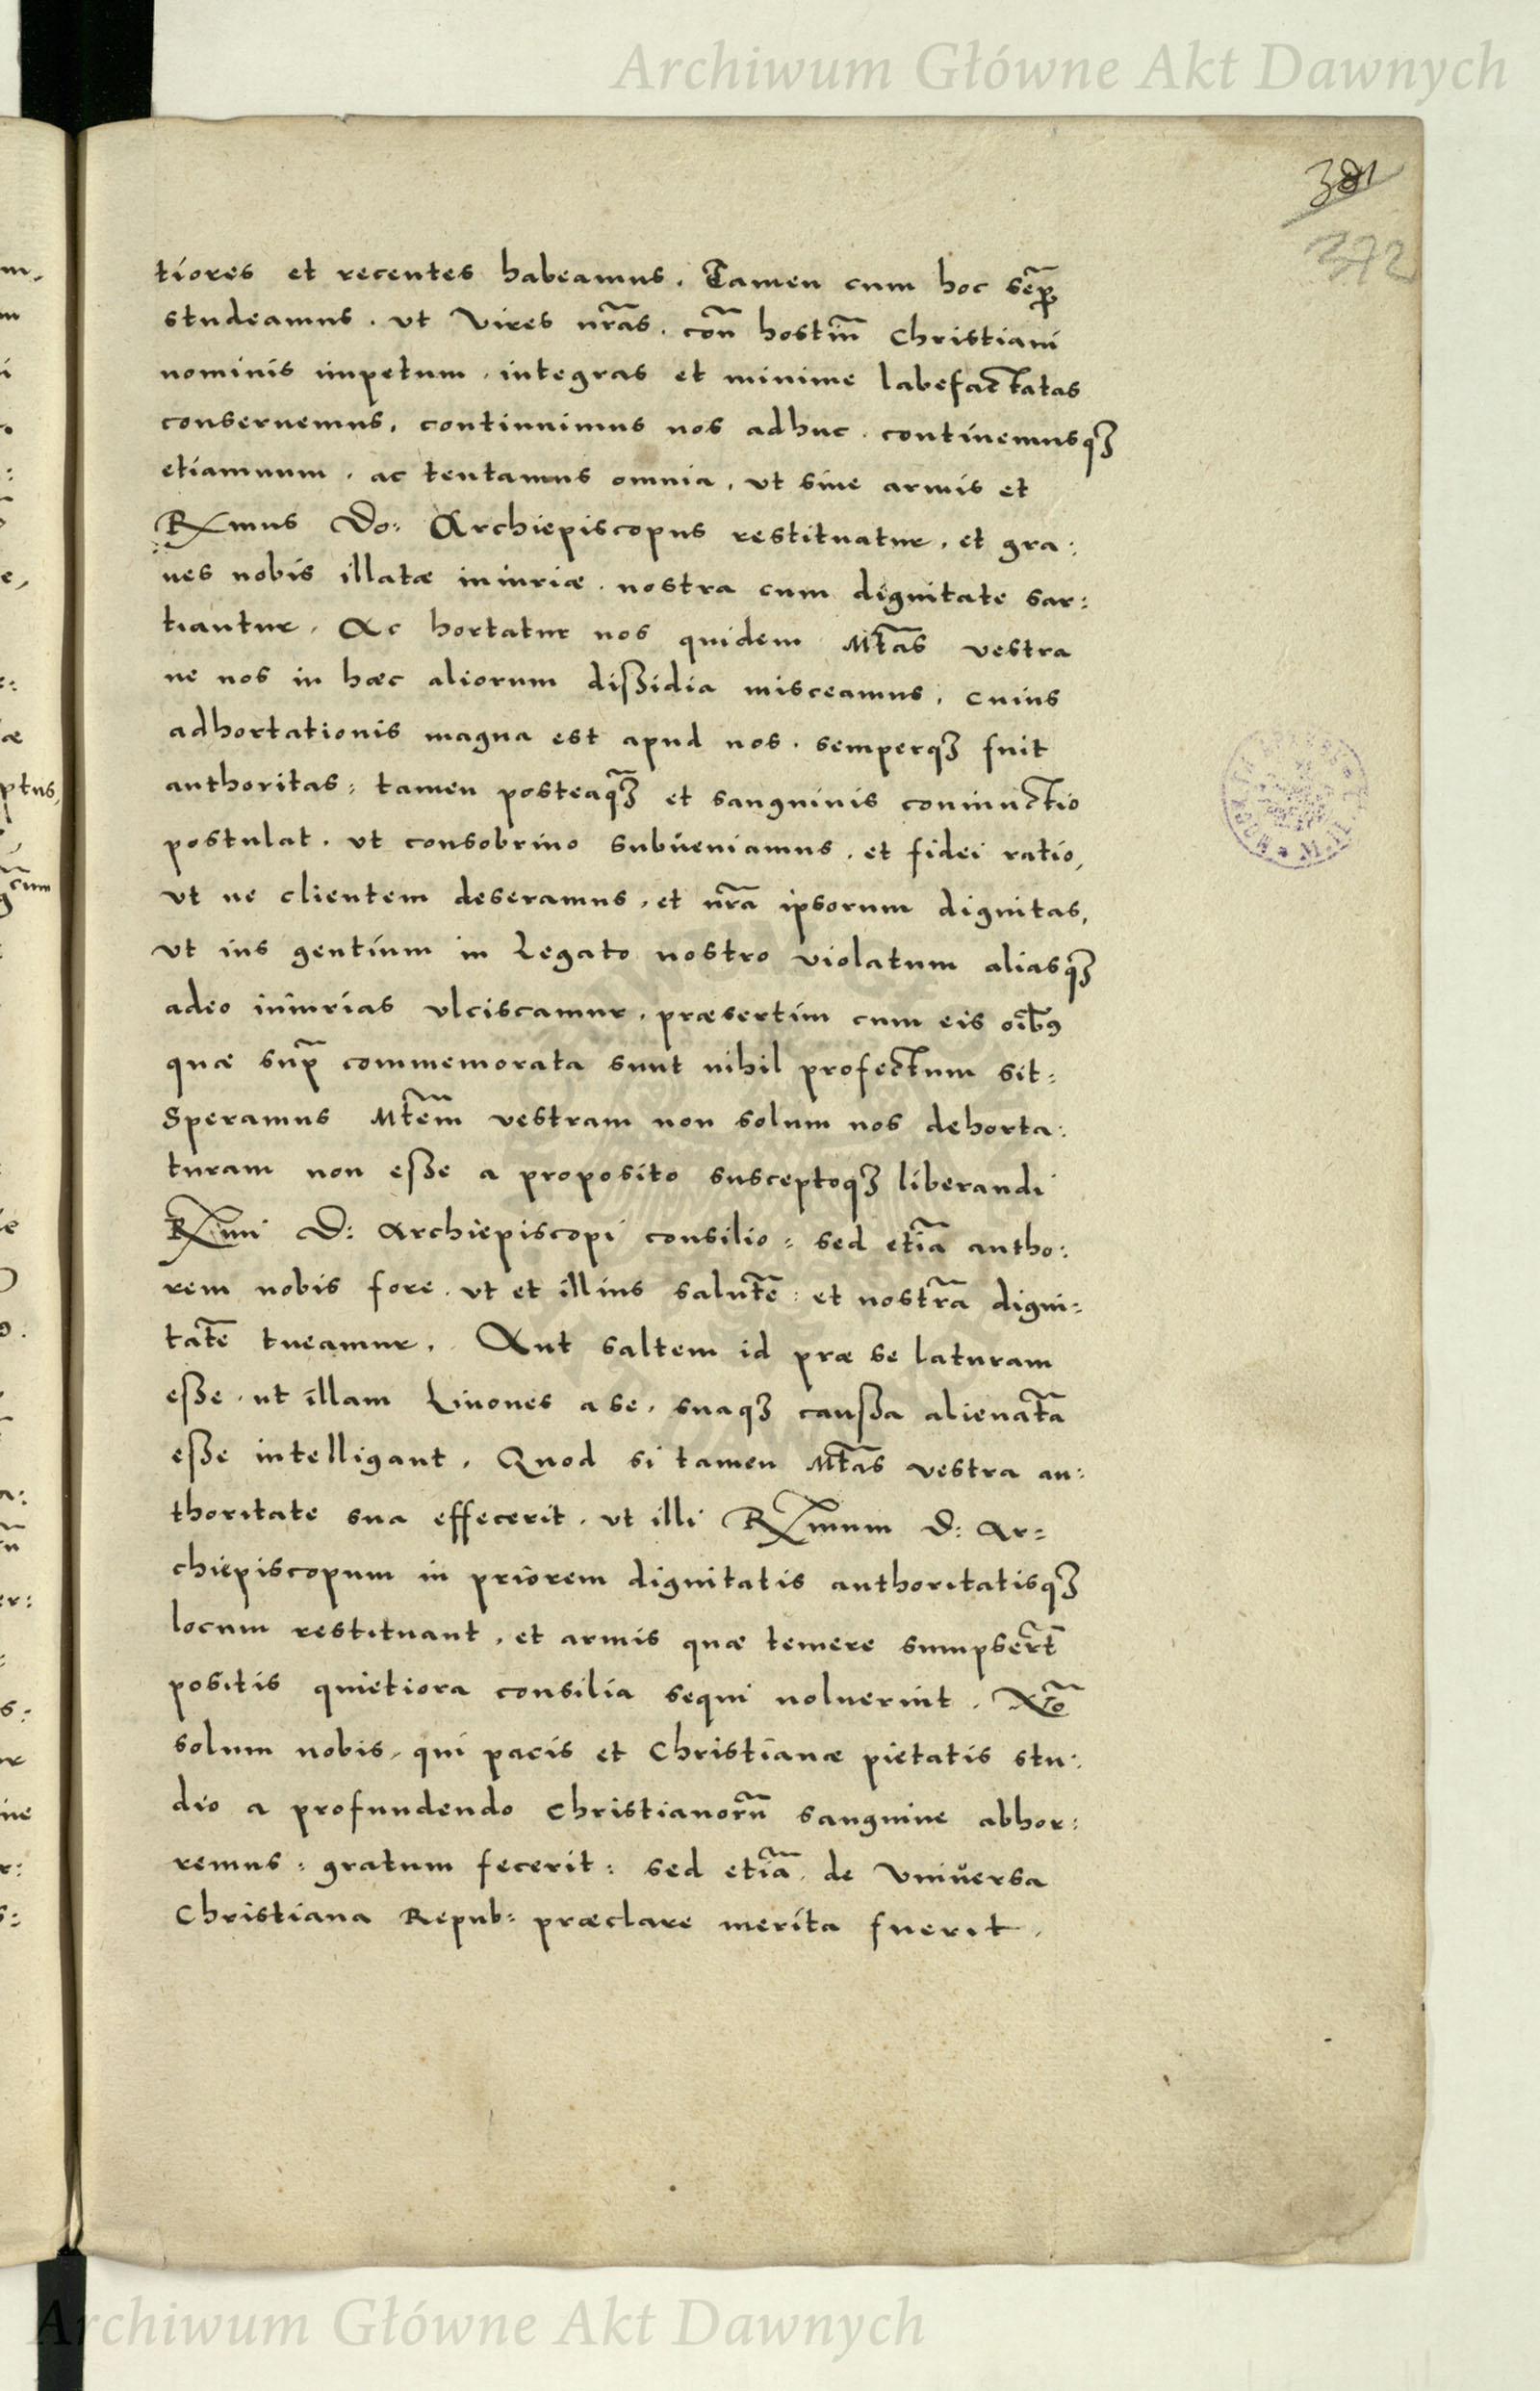 Archiwum Główne Akt Dawnych
381
372
tiores et recentes habeamus. Tamen cum hoc semp̃
studeamus. ut Vires nr̃as. con̄ hostiũ Christiani
nominis impetum. integras et minime labefactatas
conseruemus. continuimus nos adhuc. continemusqȝ
etiamnum. ac tentamus omnia. ut sine armis et
Rmus Do: Archiepiscopus restituatur. et gra:
ues nobis illatæ iniuriæ. nostra cum dignitate sar:
tiantur. Ac hortatur nos quidem Mt̃as vestra
ne nos in hæc aliorum dißidia misceamus. cuius
adhortationis magna est apud nos. semperqȝ fuit
authoritas: tamen posteaq̃ȝ et sanguinis coniunctio
postulat. ut consobrino subueniamus. et fidei ratio,
ut ne clientem deseramus. et nr̃a ipsorum dignitas,
ut ius gentium in Legato nostro violatum aliasqȝ
adeo iniurias ulciscamur. præsertim cum eis oĩbus
quæ sup̃ commemorata sunt nihil profectum sit:
Speramus Mt̃em vestram non solum nos dehorta:
turam non eße a proposito susceptoqȝ liberandi
Rmi D: Archiepiscopi consilio: sed etiã autho:
rem nobis fore. ut et illius salutẽ: et nostrã digni:
tatẽ tueamur. Aut saltem id præ se laturam
eße. ut illam Liuones a se. suaqȝ caußa alienatã
eße intelligant. Quod si tamen Mt̃as vestra au:
thoritate sua effecerit. ut illi Rmum D: Ar:
chiepiscopum in priorem dignitatis authoritatisqȝ
locum restituant. et armis quæ temere sumpser̃t
positis quietiora consilia sequi uoluerint. Nõ
solum nobis, qui pacis et Christianæ pietatis stu:
dio a profundendo Christianorũ sanguine abhor:
remus: gratum fecerit: sed etiã. de Vniuersa
Christiana Repub: præclare merita fuerit.
Archiwum Główne Akt Dawnych